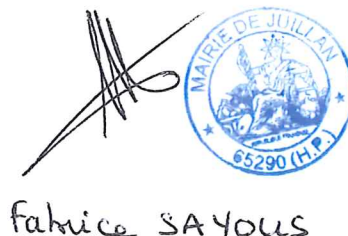 MAIRIE DE JUILLAN
65290 (H.P.)
Fabrice SAYOUS